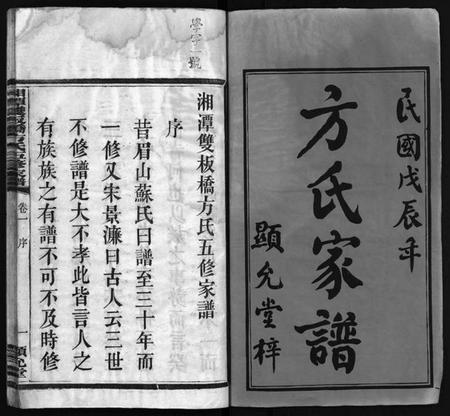 民國戊辰年
方氏家譜
顯允堂梓
學字一號
湘潭雙板橋方氏五修家譜
序
昔眉山蘇氏曰譜至三十年而
一修又朱景濂曰古人云三世
不修譜是大不孝此皆言人之
有族族之有譜不可不及時修
卷一
序
一
顯允堂